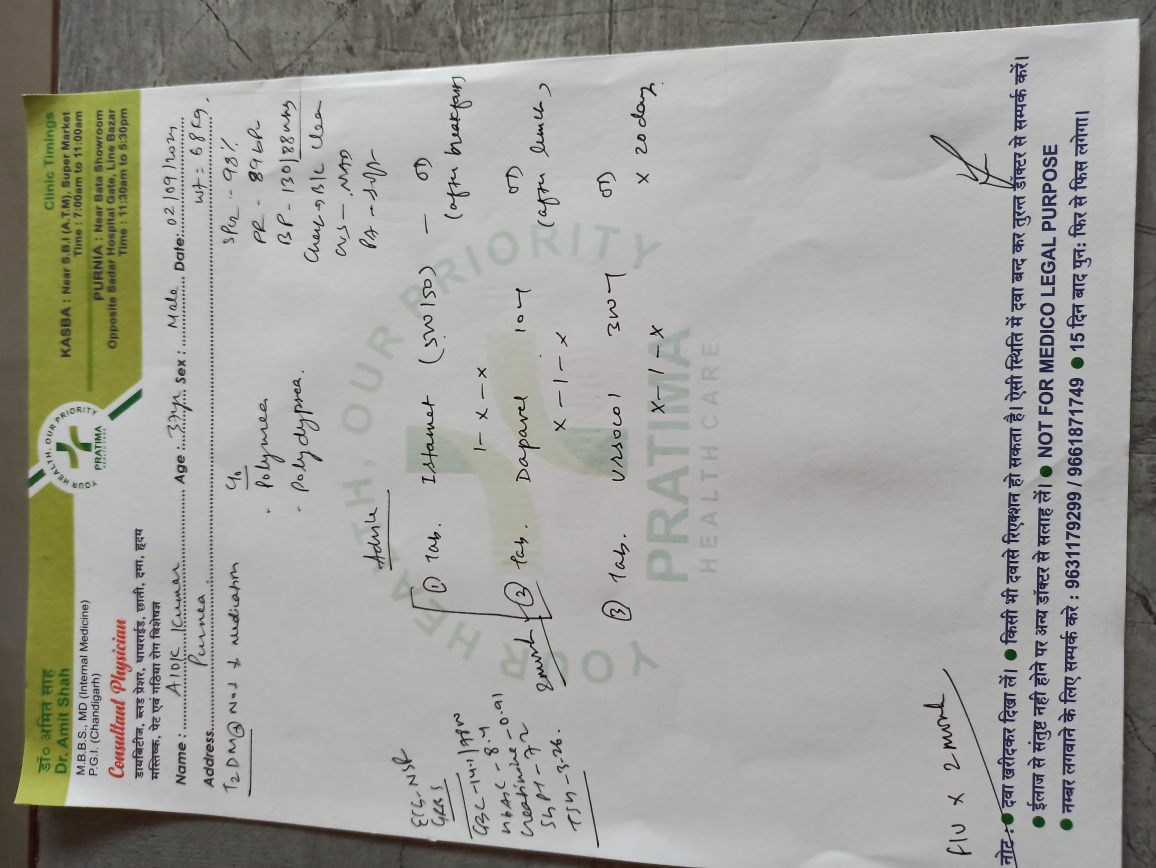 डॉ० अमित साह
Dr. Amit Shah
M.B.B.S., MD (Internal Medicine)
P.G.I. (Chandigarh)
Consultant Physician
डायबिटीज, ब्लड प्रेशर, थायराईड, छाती, दमा, हृदय
मस्तिष्क, पेट एवं गठिया रोग विशेषज्ञ
YOUR HEALTH, OUR PRIORITY
PRATIMA
Clinic Timings
KASBA : Near S.B.I (A.T.M), Super Market
Time : 7:00am to 11:00am
PURNIA : Near Bata Showroom
Opposite Sadar Hospital Gate, Line Bazar
Time : 11:30am to 5:30pm
Name : Alok Kumar Age : 37yr Sex : Male Date: 02/09/2024
Address. Purnea Wt = 68 kg.
T2DM Not medication
C/o
- Polyurea
- Polydypsea.
SPO2 - 98%
PR - 89
BP - 130/88
Chest B/L Clear
CVS - NAD
PA - Soft
ECG - NSR
GRBS
HbA1C - 8.4
Creatinine - 0.91
SGPT - 72
TSH - 3.26.
Advise
① Tab. Istamet (500/50) - OD
1 - x - x (after breakfast)
② Tab. Daparel 10 OD
x - 1 - x (after lunch)
2 month
③ Tab. Ursocol 300 OD
x - 1 - x x 20 days
YOUR HEALTH, OUR PRIORITY
PRATIMA
HEALTH CARE
F/U x 2 month
नोट : ● दवा खरीदकर दिखा लें। ● किसी भी दवासे रिएक्शन हो सकता है। ऐसी स्थिति में दवा बन्द कर तुरन्त डॉक्टर से सम्पर्क करें।
● ईलाज से संतुष्ट नही होने पर अन्य डॉक्टर से सलाह लें। ● NOT FOR MEDICO LEGAL PURPOSE
● नम्बर लगवाने के लिए सम्पर्क करे : 9631179299 / 9661871749 ● 15 दिन बाद पुन: फिर से फिस लगेगा।